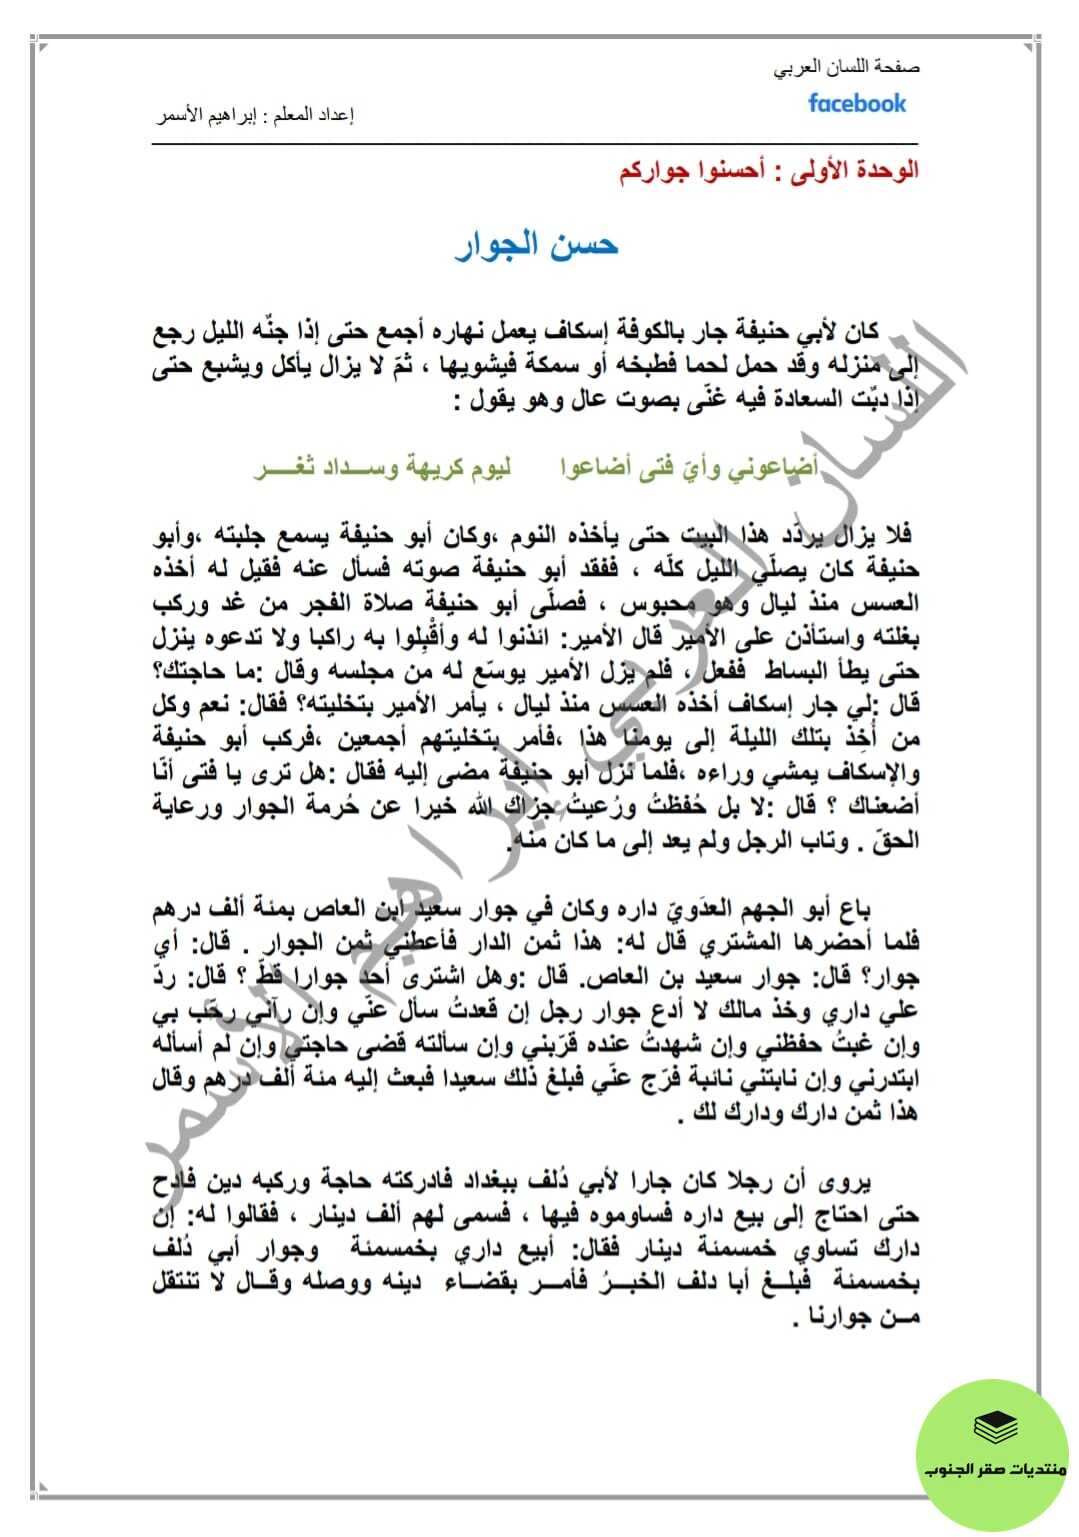 صفحة اللسان العربي
facebook
إعداد المعلم : إبراهيم الأسمر
الوحدة الأولى : أحسنوا جواركم
حسن الجوار
كان لأبي حنيفة جار بالكوفة إسكاف يعمل نهاره أجمع حتى إذا جنّه الليل رجع
إلى منزله وقد حمل لحما فطبخه أو سمكة فيشويها ، ثمّ لا يزال يأكل ويشبع حتى
إذا دبّت السعادة فيه غنّى بصوت عال وهو يقول :
أضاعوني وأيّ فتى أضاعوا ليوم كريهة وســداد ثغــــر
فلا يزال يردّد هذا البيت حتى يأخذه النوم ،وكان أبو حنيفة يسمع جلبته ،وأبو
حنيفة كان يصلّي الليل كلّه ، ففقد أبو حنيفة صوته فسأل عنه فقيل له أخذه
العسس منذ ليال وهو محبوس ، فصلّى أبو حنيفة صلاة الفجر من غد وركب
بغلته واستأذن على الأمير قال الأمير: ائذنوا له وأقْبِلوا به راكبا ولا تدعوه ينزل
حتى يطأ البساط ففعل ، فلم يزل الأمير يوسّع له من مجلسه وقال :ما حاجتك؟
قال :لي جار إسكاف أخذه العسس منذ ليال ، يأمر الأمير بتخليته؟ فقال: نعم وكل
من أُخِذ بتلك الليلة إلى يومنا هذا ،فأمر بتخليتهم أجمعين ،فركب أبو حنيفة
والإسكاف يمشي وراءه ،فلما نزل أبو حنيفة مضى إليه فقال :هل ترى يا فتى أنّا
أضعناك ؟ قال :لا بل حُفظتُ ورُعيتُ جزاك الله خيرا عن حُرمة الجوار ورعاية
الحقّ . وتاب الرجل ولم يعد إلى ما كان منه.
باع أبو الجهم العدَويّ داره وكان في جوار سعيد ابن العاص بمئة ألف درهم
فلما أحضرها المشتري قال له: هذا ثمن الدار فأعطني ثمن الجوار . قال: أي
جوار؟ قال: جوار سعيد بن العاص. قال :وهل اشترى أحد جوارا قطّ ؟ قال: ردّ
علي داري وخذ مالك لا أدع جوار رجل إن قعدتُ سأل عنّي وإن رآني رحّب بي
وإن غبتُ حفظني وإن شهدتُ عنده قرّبني وإن سألته قضى حاجتي وإن لم أسأله
ابتدرني وإن نابتني نائبة فرّج عنّي فبلغ ذلك سعيدا فبعث إليه مئة ألف درهم وقال
هذا ثمن دارك ودارك لك .
يروى أن رجلا كان جارا لأبي دُلف ببغداد فادركته حاجة وركبه دين فادح
حتى احتاج إلى بيع داره فساوموه فيها ، فسمى لهم ألف دينار ، فقالوا له: إن
دارك تساوي خمسمئة دينار فقال: أبيع داري بخمسمئة وجوار أبي دُلف
بخمسمئة فبلــغ أبا دلف الخبــرُ فأمــر بقضــاء دينه ووصله وقــال لا تنتقل
مــن جوارنا .
اللسان العربي إبراهيم الأسمر
منتديات صقر الجنوب